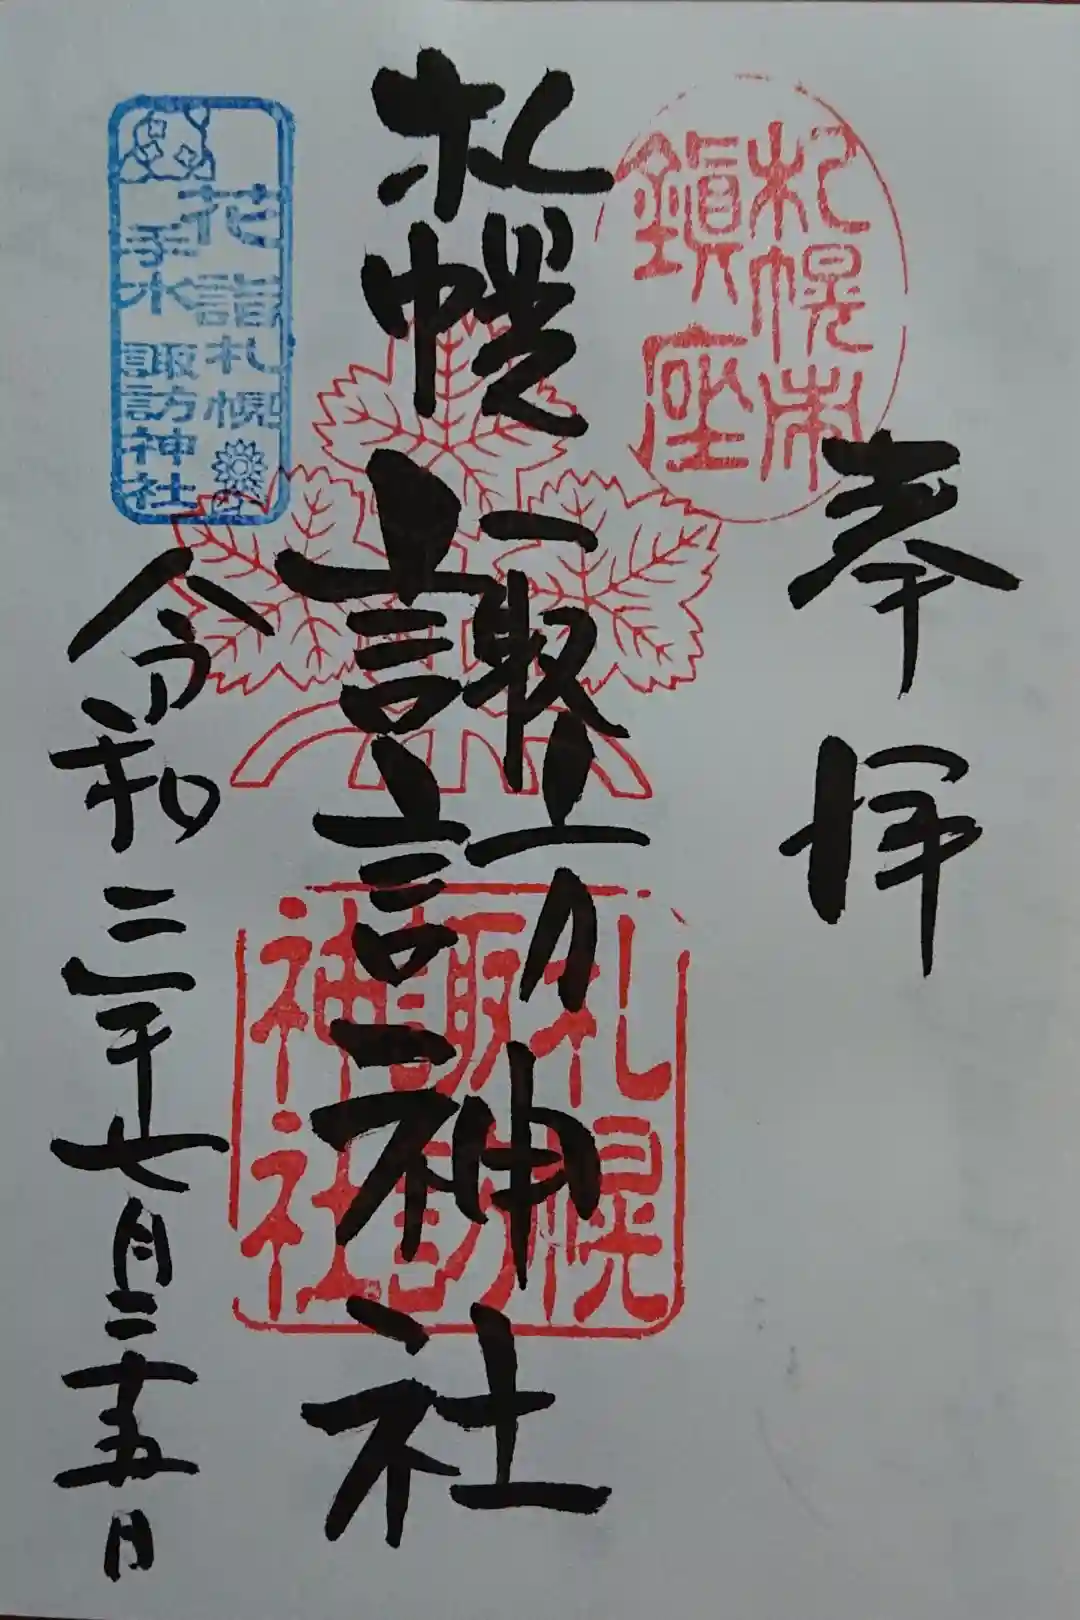 奉拝
札幌市
鎮座
札幌諏訪神社
札幌
諏訪
神社
令和三年七月二十五日
花詣
手水
札幌
諏訪神社